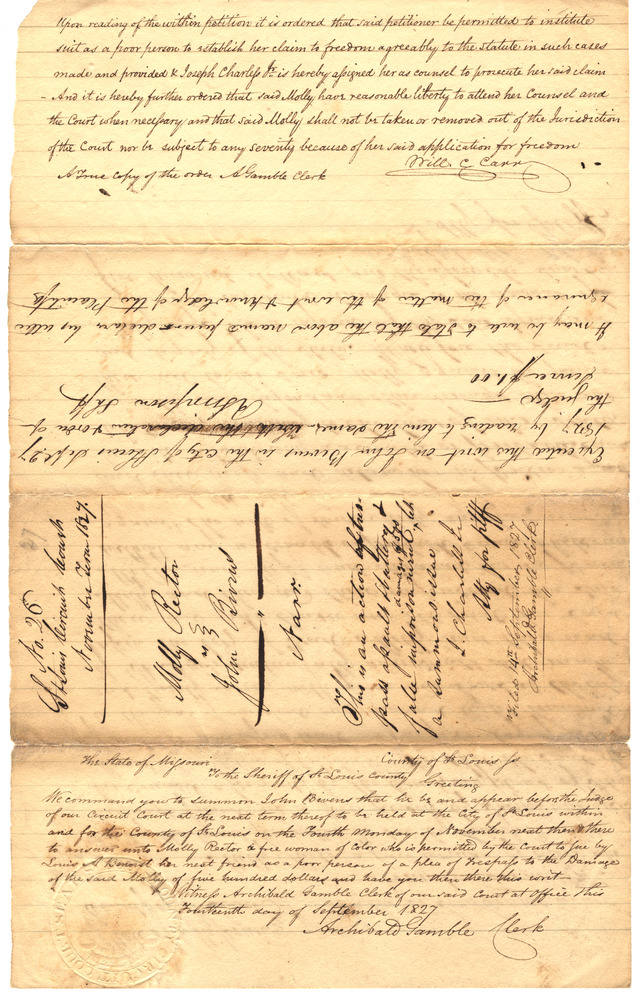 Upon reading of the within petition it is ordered that said petitioner be permitted to institute
suit as a poor person to establish her claim to freedom agreeably to the statute in such cases
made and provided & Joseph Charless Jr. is hereby assigned her as counsel to prosecute her said claim
- And it is hereby further ordered that said Molly have reasonable liberty to attend her Counsel and
the Court when necessary and that said Molly shall not be taken or removed out of the Jurisdiction
of the Court nor be subject to any severity because of her said application for freedom
Will. C Carr
A True copy of the order A Gamble Clerk
Executed this writ on John Bivens in the City of St Louis Sept. 27
1827 by reading to him the same & order of
the judge
R Simpson Shff
Service $1.00
It may be well to state that the above named declares his utter
ignorance of the matter of the writ & knowledge of the Plaintiff
No. 26
St Louis Circuit Court
November Term 1827.
Molly Rector
vs
John Bivens
Narr.
This is an action of tres-
pass assault & battery &
false imprisonment, let
damages $500
a summons issue
J. Charless Jr
Atty for plff
Filed 14th September 1827
Archibald Gamble Clerk
The State of Missouri County of St Louis ss
To the Sheriff of St Louis County Greeting
We command you to summon John Bivens that he be and appear before the Judge
of our Circuit Court at the next term thereof to be held at the City of St Louis within
and for the County of St Louis on the Fourth Monday of November next then & there
to answer unto Molly Rector a free woman of color who is permitted by the Court to sue by
Louis A Benoist her next friend as a poor person of a plea of trespass to the Damage
of the said Molly of five hundred dollars and have you then there this writ
Witness Archibald Gamble Clerk of our said Court at Office this
Fourteenth day of September 1827
Archibald Gamble Clerk